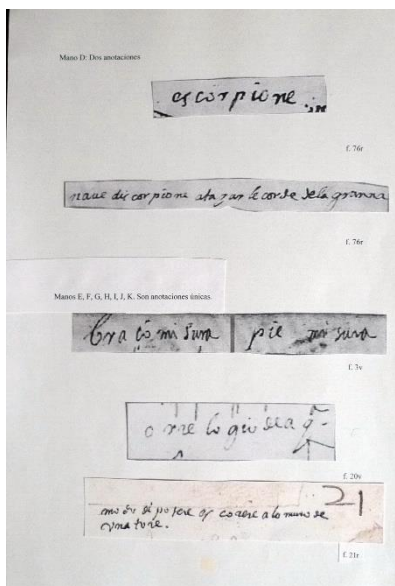 Mano D: Dos anotaciones
escorpione
f. 76r
naue discorpione atazar le corde dela granna
f. 76r
Manos E, F, G, H, I, J, K. Son anotaciones únicas.
braço misura pie misura
f. 3v
orrelogio de a
f. 20v
21
modo di potere escorere alo muro de
una tore.
f. 21r